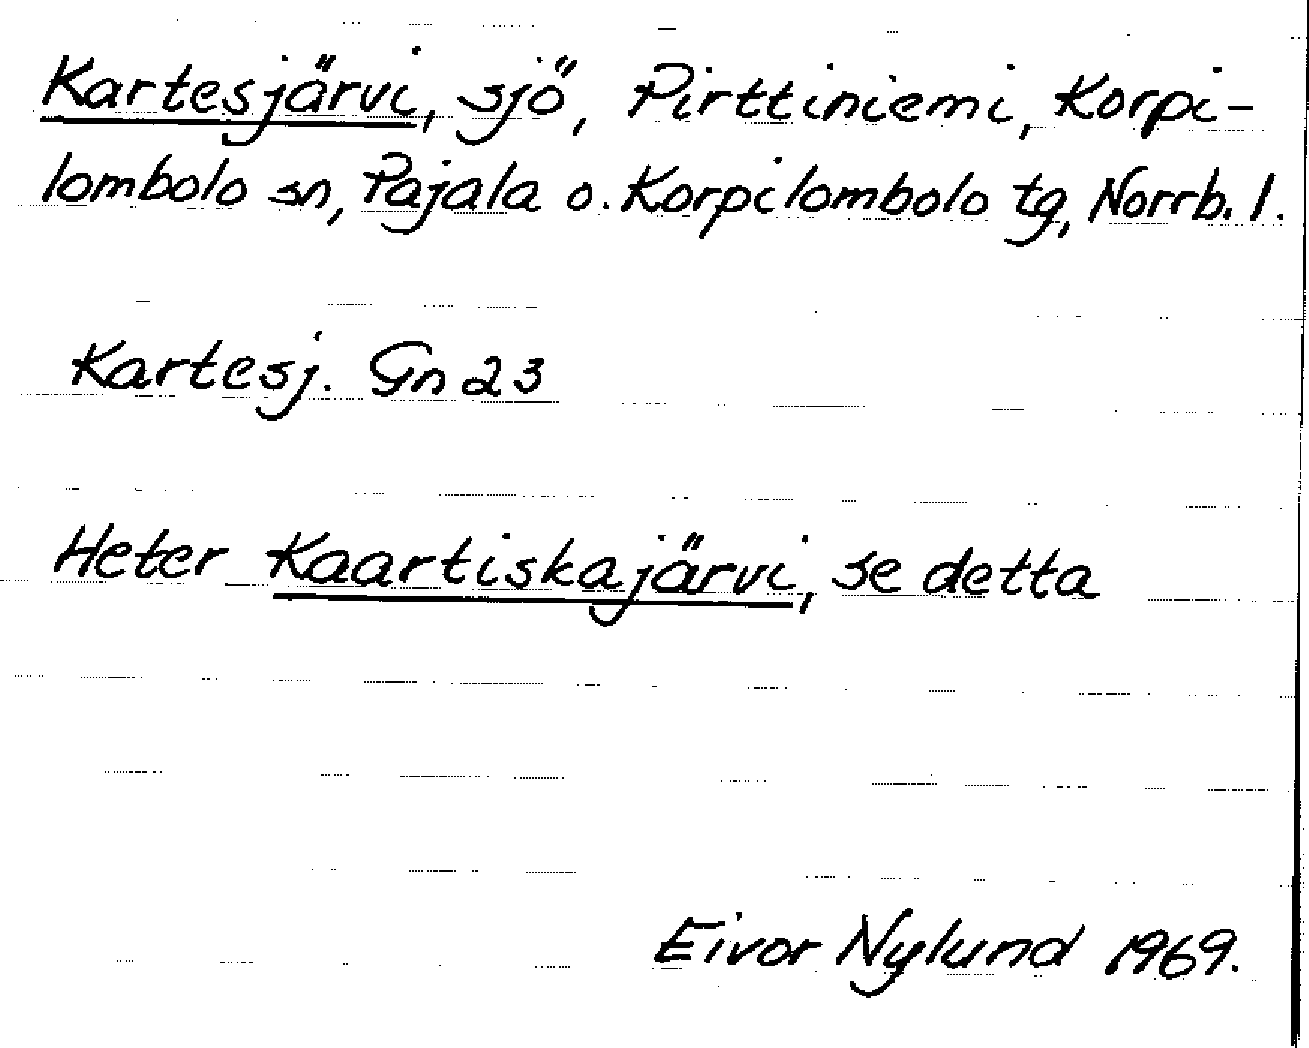 Kartesjärvi, sjö, Pirttiniemi, Korpi-
lombolo sn, Pajala o. Korpilombolo tg, Norrb. l.
Kartesj. Gn 23
Heter Kaartiskajärvi, se detta
Eivor Nylund 1969.